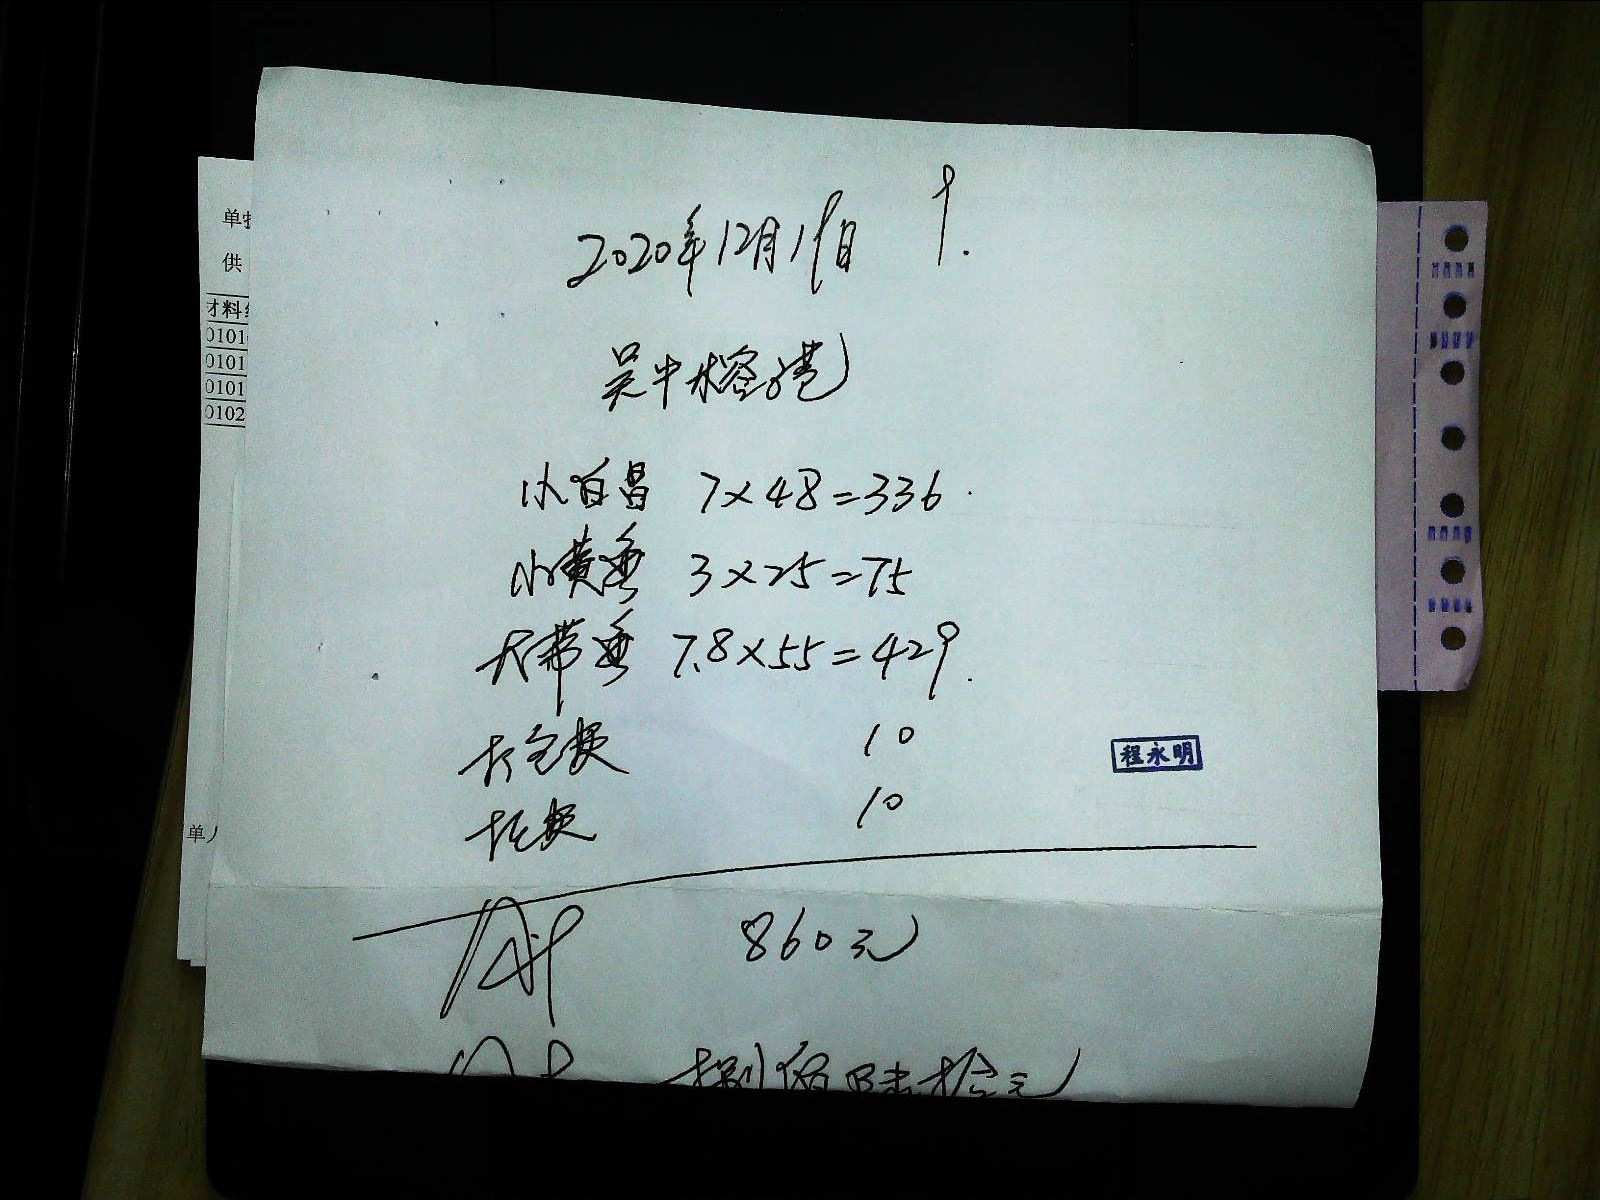 单
供
材料
0101
0101
0101
0102
单人
2020年12月19日 9.
吴中木容港
小白昌 7×48=336
小黄鱼 3×25=75
大带鱼 7.8×55=429.
打包费 10
托费 10
程永明
860元
捌佰陆拾元